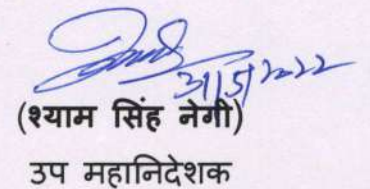 31/5/2022
(श्याम सिंह नेगी)
उप महानिदेशक